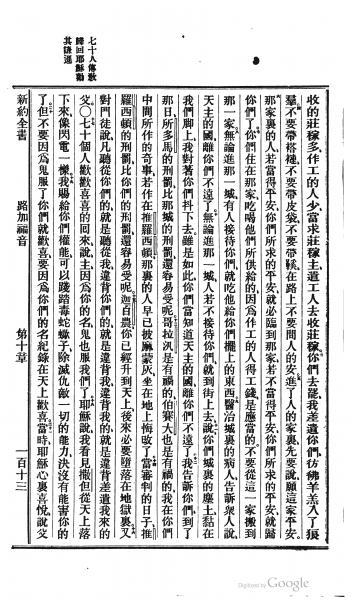 七十人傳敎
歸回耶穌勸
其謙遜
收的莊稼多作工的人少當求莊稼主遣工人去收莊稼你們去罷我差遣你們彷彿羊羔入了狼
羣不要帶搭褳不要帶皮袋不要帶鞋在路上不要問人的安進了人的家裏先要說願這家平安
那家裏的人若當得平安你們所求的平安就必臨到那家若不當得平安你們所求的平安就歸
你們了你們住在那家吃喝他們所供給的因爲作工的人得工錢是應當的不要從這一家搬到
那一家無論進那一城有人接待你們就吃他給你們擺上的東西醫治城裏的病人告訴衆人說
天主的國離你們不遠了無論進那一城人若不接待你們就到街上去說你們城裏的塵土黏在
我們脚上我對着你們抖下去雖是如此你們當知道天主的國離你們不遠了我告訴你們到了
那日所多馬的刑罰比那城的刑罰還容易受呢哥拉汛是有禍的伯賽大也是有禍的我在你們
中間所作的奇事若作在推羅西頓那裏的人早已披麻蒙灰坐在地上悔改了當審判的日子推
羅西頓的刑罰比你們的刑罰還容易受呢迦百農你已經升到天上後來必要墮落在地獄裏又
對門徒說凡聽從你們的就是聽從我違背你們的就是違背我違背我的就是違背差遣我來的
父○七十個人歡歡喜喜的回來說主因爲你的名鬼也服我們了耶穌說我看見撒但從天上落
下來像閃電一樣我賜給你們權能可以踐踏毒蛇蠍子除滅仇敵一切的能力決沒有能害你的
了但不要因爲鬼服了你們就歡喜要因爲你們的名紀錄在天上歡喜當時耶穌心裏喜悅說父
新約全書 路加福音 第十章 一百十三
Digitized by Google